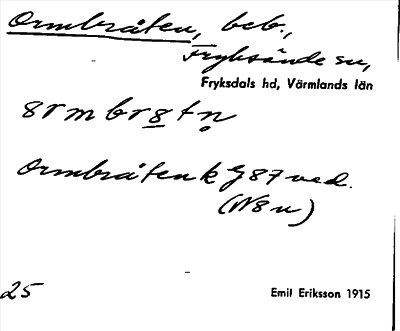 Ormbråten, beb.,
Fryksände sn,
Fryksdals hd, Värmlands län
8rmbr8tn
Ormbråten k G 87 ved.
(N8n)
25
Emil Eriksson 1915